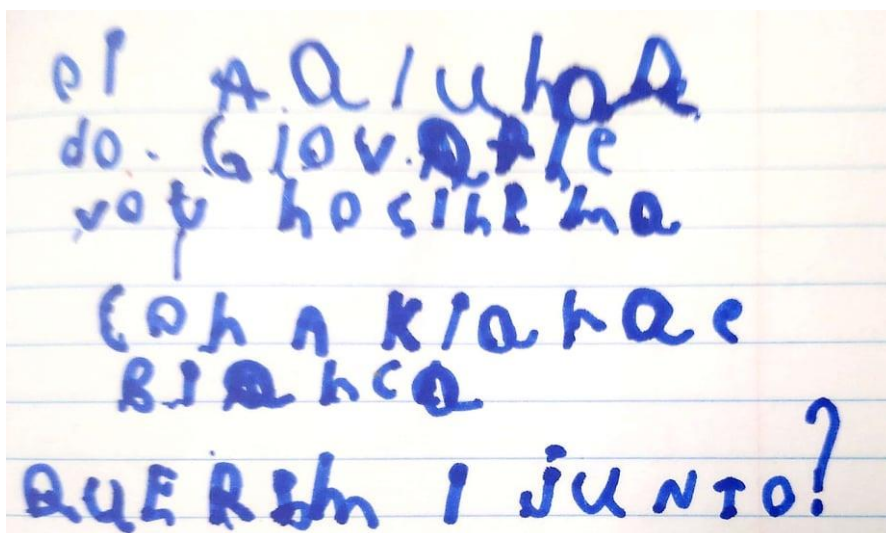 ei A Aluhaa
do. Giovane
vou no sinema
con A Kiara e
Bianca
QUEREm I JUNTO?